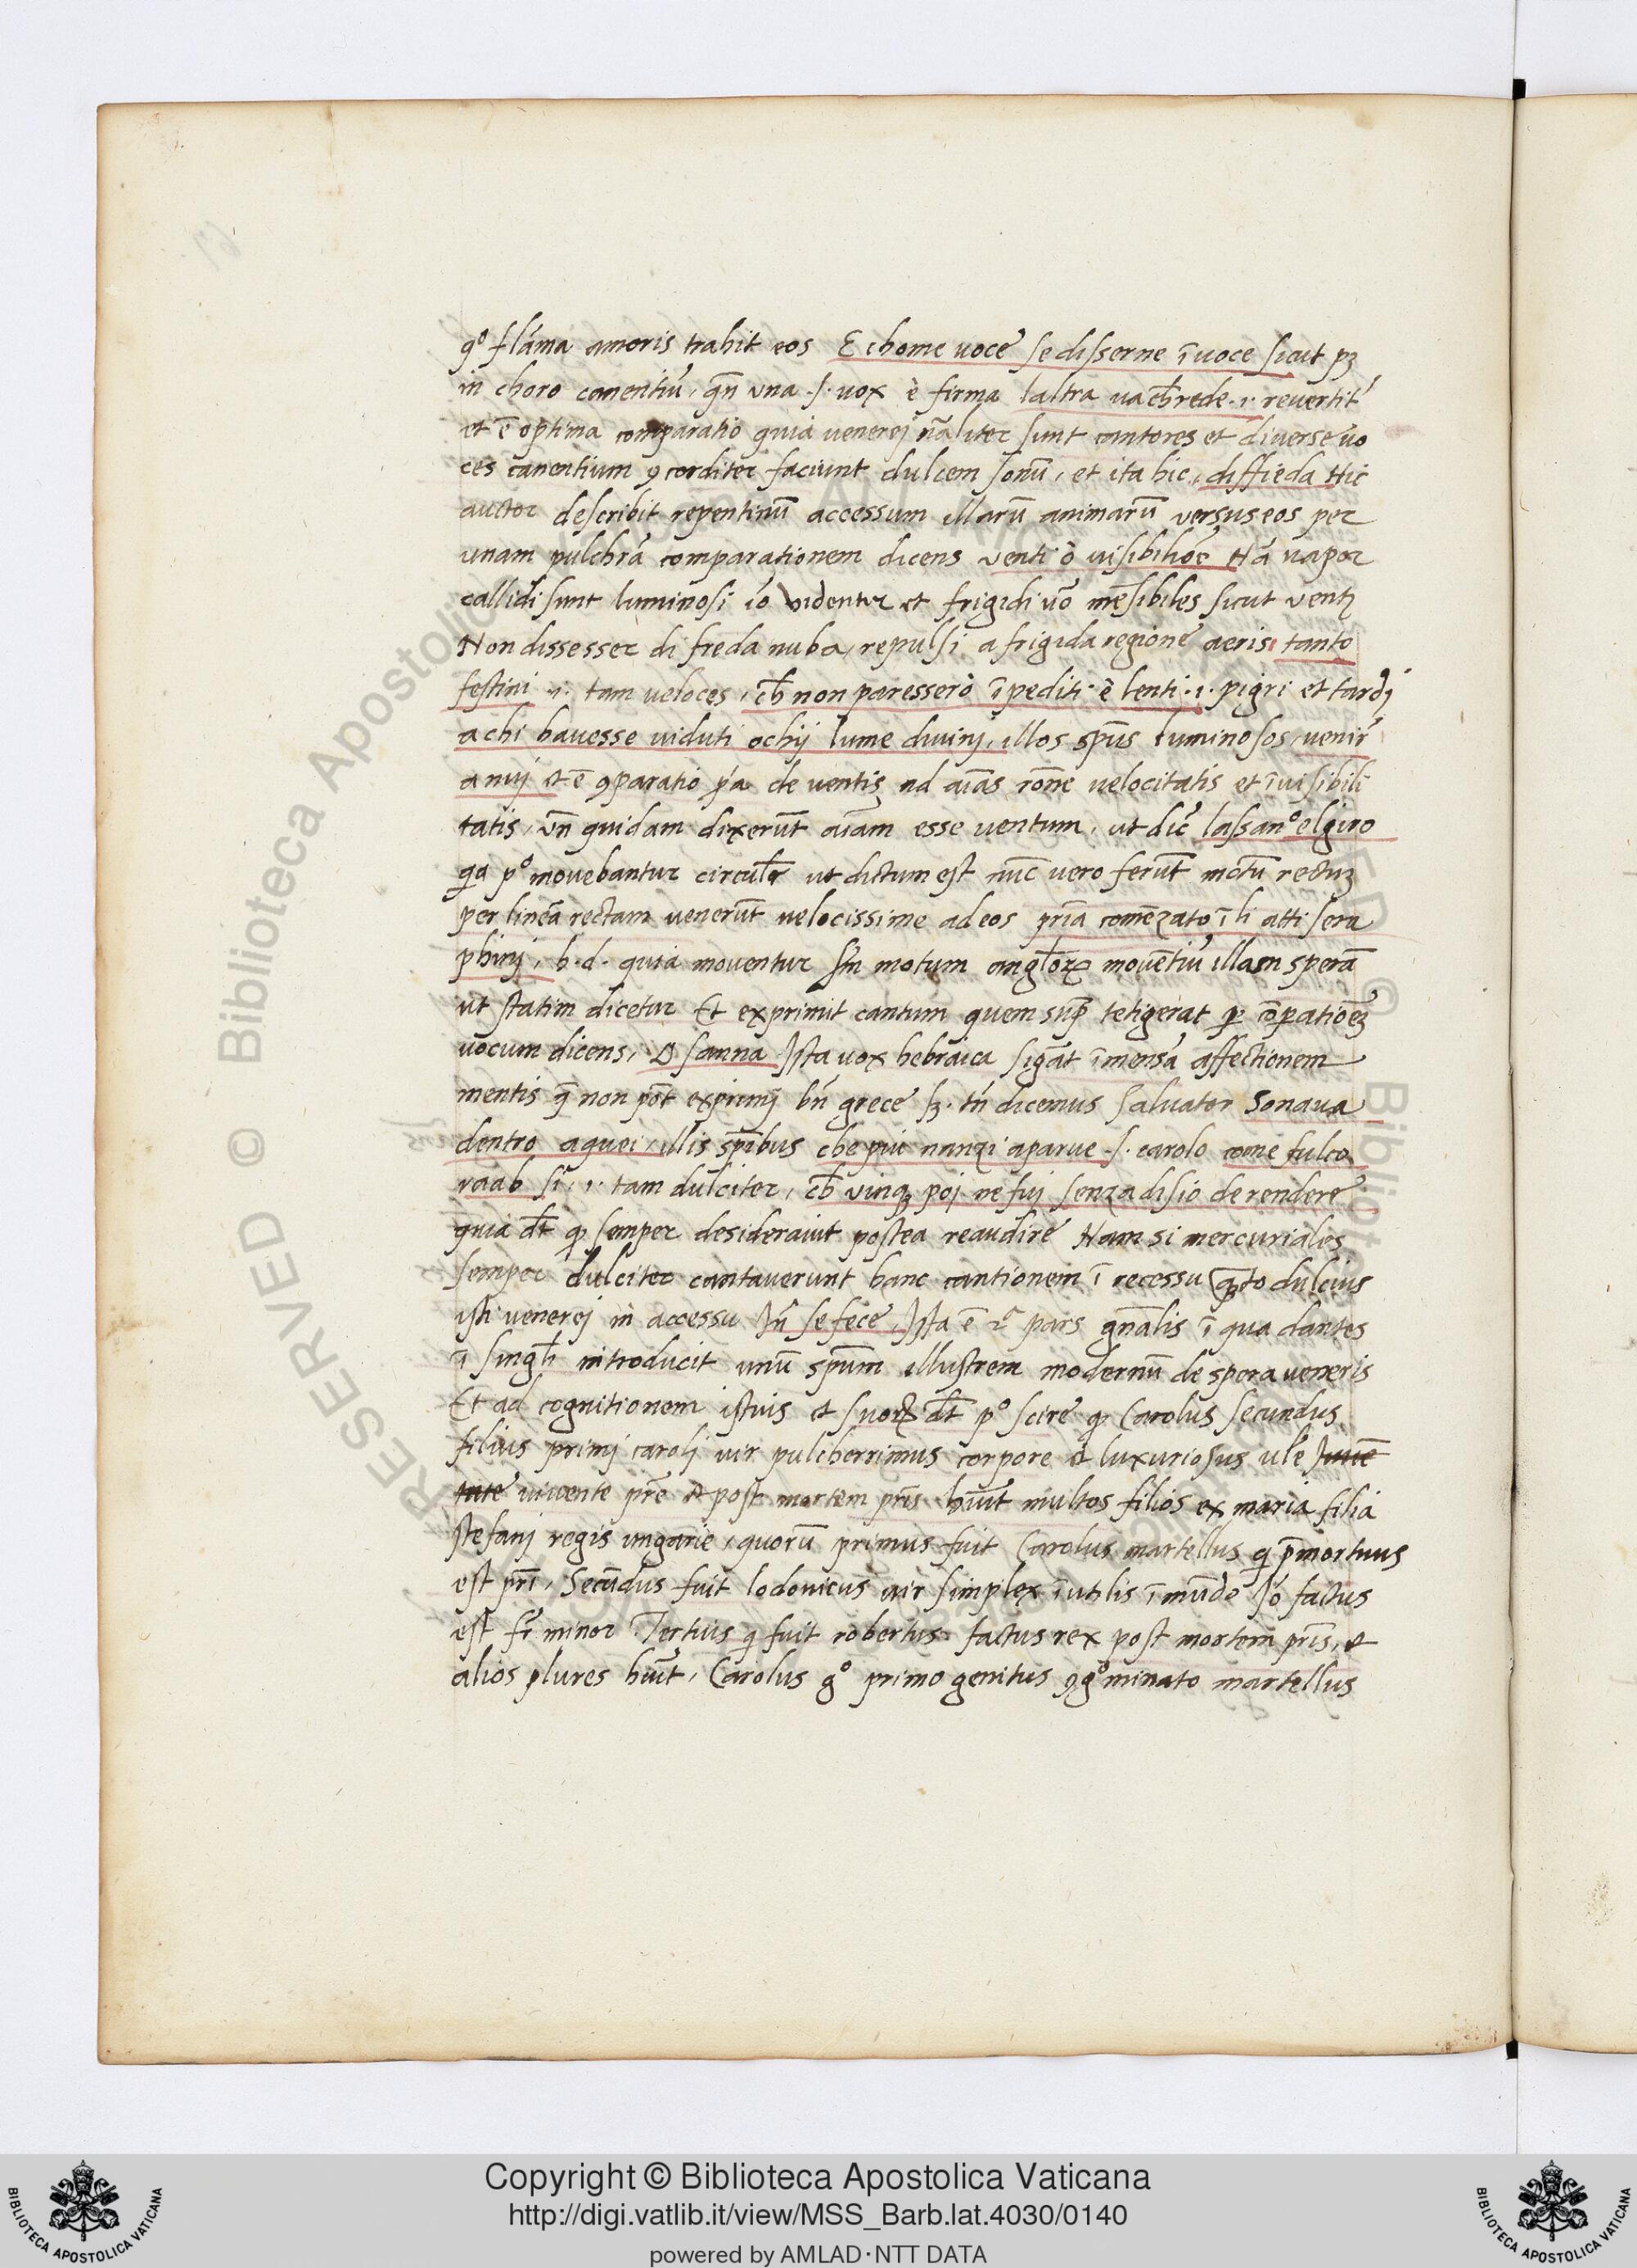 gº flāma amoris trahit eos E chome uoce se disserne ī uoce sicut pȝ
in choro canentiū, qn̄ vna .s. uox è firma laltra ua ch̄ rede .i. revertit᷑
et ē optima comparatio quia venerej nāliter sunt cantores et diverse uo
ces canentium ꝯcorditer faciunt dulcem sonū, et ita hic, diffieda Hic
auctor describit repentinū accessum illarū animarū versus eos per
unam pulchrā comparationem dicens venti ò uisibili Nā vapor
callidi sunt luminosi iō videntur et frigidi uō sicut ventj
Non dissesser di freda nuba, repulsi a frigida regione aeris tanto
festini .i. tam veloces, ch̄ non paresserò īpediti è lenti .i. pigri et tardj
a chi hauesse uiduti ochij lume divinj, illos sp̄us luminosos, venir
a nuj et ē ꝯparatio p̄a de ventis ad aīas rōne velocitatis et īvisibili
tatis, vn̄ quidam dixerūt aīam esse ventum, ut dic̄ lassanº el giro
qa pº movebantur circul̄r ut dictum est nūc vero ferūt motū rectuȝ
per lineā rectam venerūt velocissime ad eos pr̄ia comēzato ī li alti sera
phinj, h.d. quia moventur sm̄ motum angl̄oꝝ movētiū illam sperā
ut statim dicetur Et exprimit cantum quem sup̄ tetigerat ꝑ cōparatiōeȝ
vocum dicens, O sanna Ista vox hebraica sigāt īmensā affectionem
mentis q̄ non pōt exprimj bn̄ grece sȝ. tn̄ dicemus salvator sonava
dentro a quei, illis spībus che piu nanzi aparue .s. carolo come fulco
raab si, .i. tam dulciter, ch̄ vinqȝ poj ne fuj senza disio de rendere
quia dt̄ ꝙ semper desideravit postea reaudire Nam si mercuriales
semper dulciter cantaverunt hanc cantionem ī recessu q̄to dulcius
isti venerej in accessu In̄ se fece, Ista ē 2ᵃ pars gnālis ī qua dantes
ī singl̄i introducit unū spūm illustrem modernū de spera veneris
Et ad cognitionem istuis et suoꝝ dt̄ pº scire ꝙ Carolus secundus
filius primj carolj vir pulcherrimus corpore et luxuriosus ul̄e Juuē
tute vivente pr̄e et post mortem pr̄is hūit multos filios ex maria filia
stefanj regis ungarie, quorū primus fuit Carolus martellus q̄ p̄mortuus
est pr̄i, Secūdus fuit lodovicus vir simplex īutilis ī mūdo Iō factus
est fr̄ minor Tertius q̄ fuit robertus factus rex post mortem pr̄is, et
alios plures hūit, Carolus gº primo genitus ꝯgºminato martellus
Copyright © Biblioteca Apostolica Vaticana
http://digi.vatlib.it/view/MSS_Barb.lat.4030/0140
powered by AMLAD·NTT DATA
BIBLIOTECA APOSTOLICA VATICANA
BIBLIOTECA APOSTOLICA VATICANA